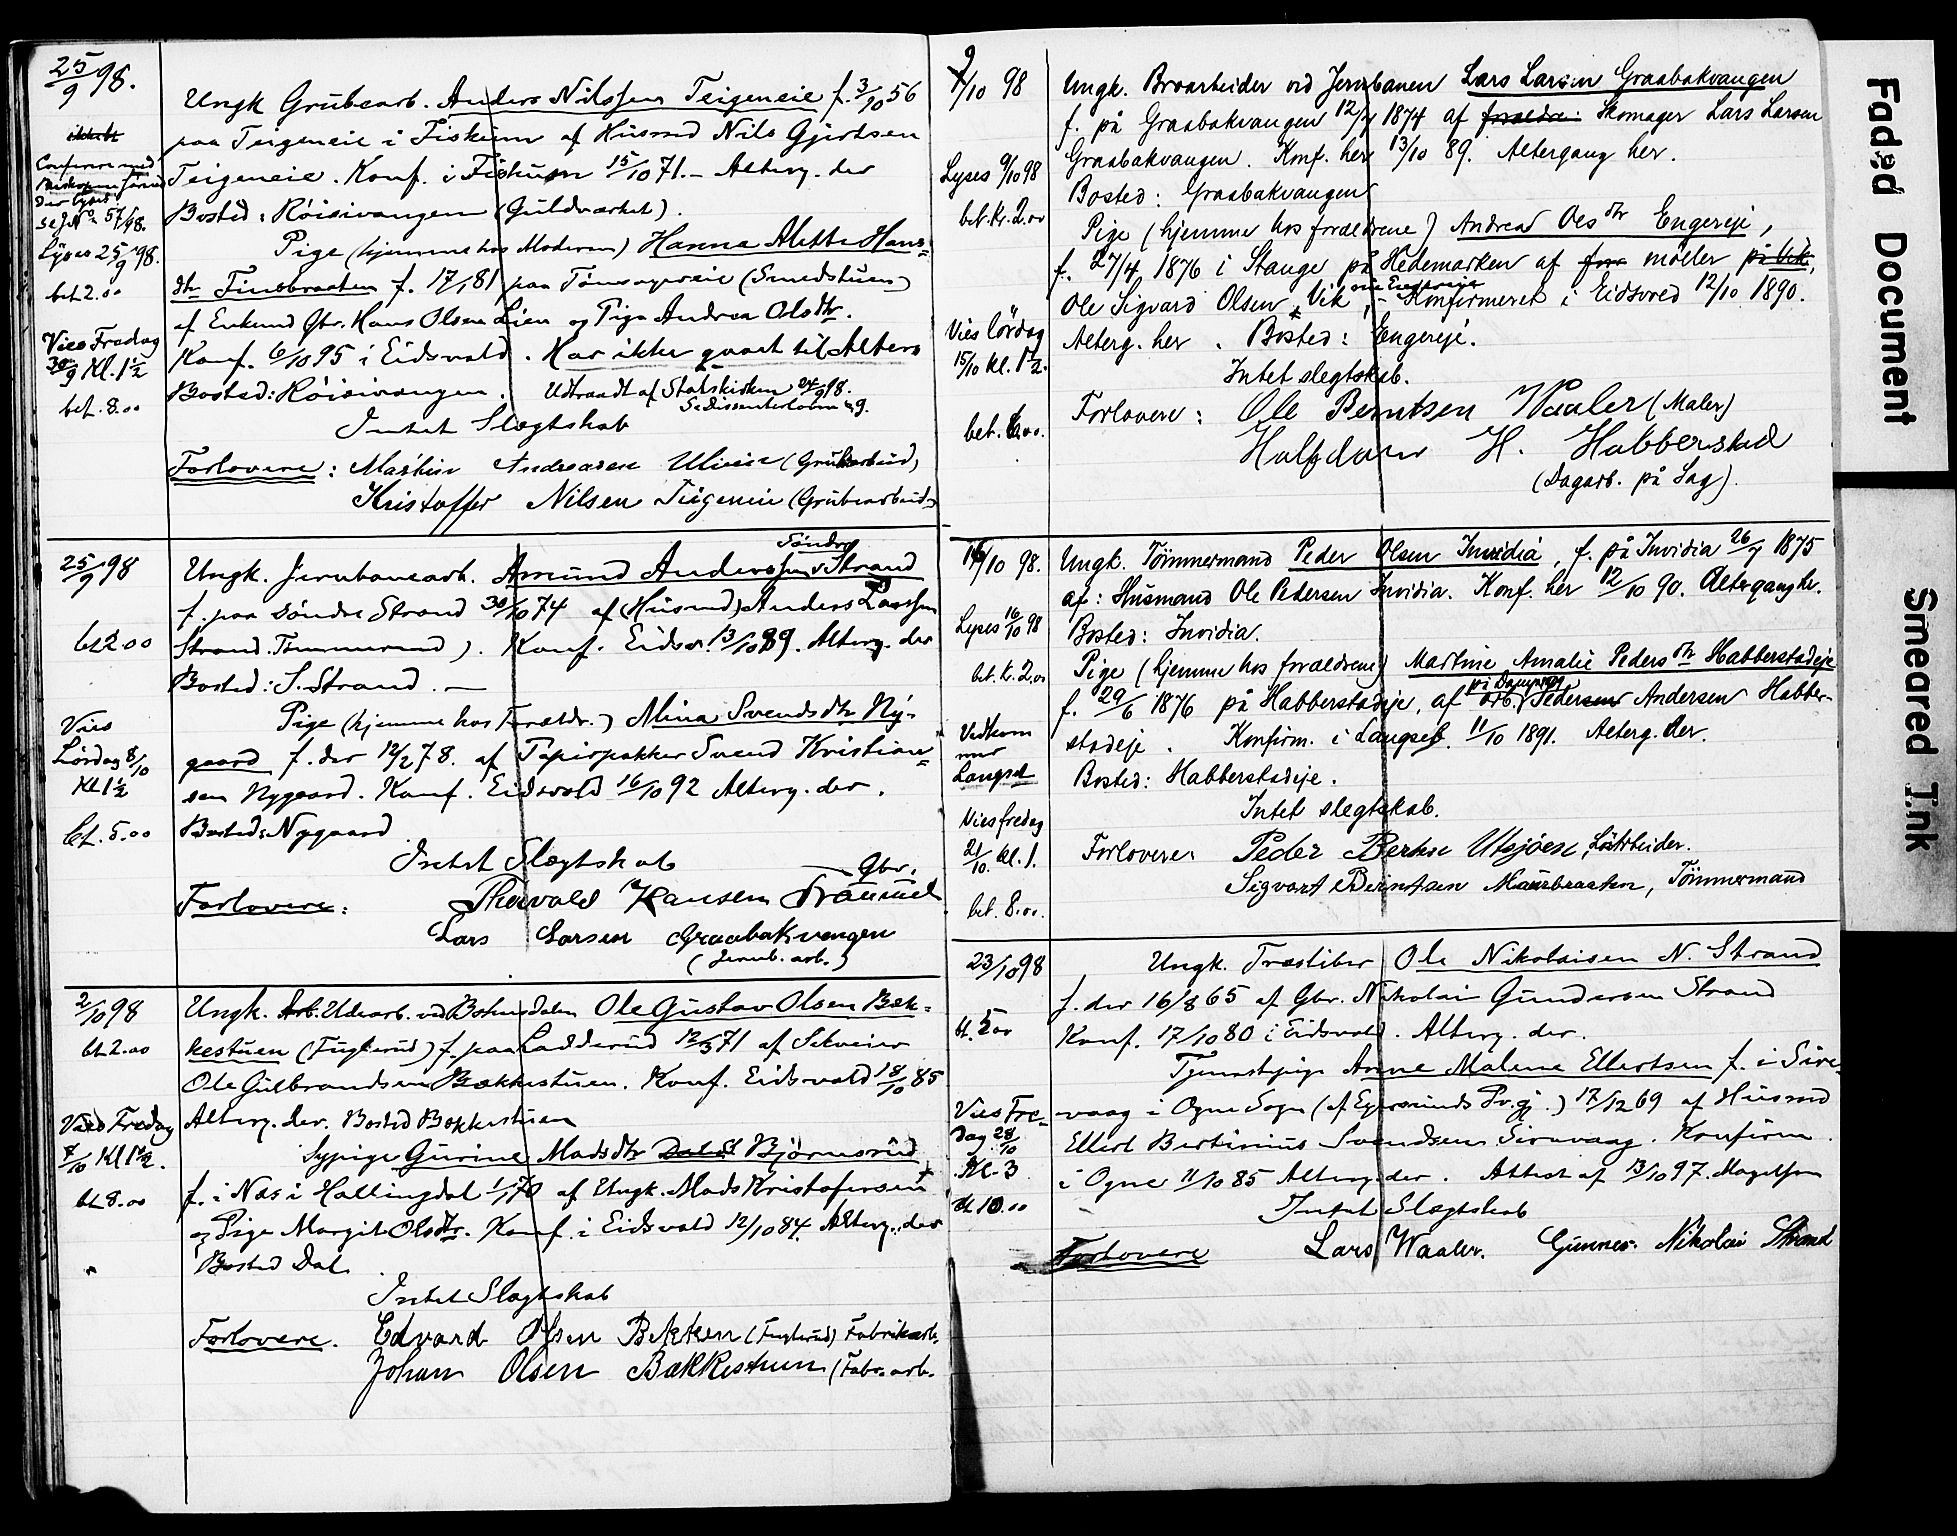 25/9 98.
Ungk Grubearb. Anders Nilssen Teigeneie f. 3/10 56
paa Teigeneie i Fiskum af Husmd Nils Gjertsen
Teigeneie. Konf. i Fiskum 15/10 71. – Alterg. der
Bosted: Röisivangen (Guldværket).
Pige (hjemme hos Moderen) Hanna Alette Hans-
dtr Finsbraaten f. 17/1 81 paa (Smedstuen)
af Enkemd Gbr. Hans Olsen Lien og Pige Andrea Olsdtr.
Konf. 6/10 95 i Eidsvold. Har ikke gaaet til Alters
Bosted: Röisivangen. Udtraadt af Statskirken 24/9 98.
Se Dissenterloven § 9.
Intet Slægtskab
Forlovere: Martin Andreasen (Grubearbeid.)
Kristoffer Nilsen Teigeneie (Grubearbeid.)
Confererer med
der lyses
se J. No 57/98.
Lyses 25/9 98.
bet 2.00
Vies Fredag
30/9 Kl. 1½
bet. 8.00
25/9 98
Söndre
Ungk. Jernbanearb. Amund Anderssen Strand
f. paa Söndre Strand 30/10 74 af (Husmd) Anders Larssen
Strand. Tømmermd). Konf. Eidsv. 13/10 89. Alterg. der
Bosted: S. Strand. —
Pige (hjemme hos Foræld.) Mina Svendsdtr Ny-
gaard f. der 12/2 78. af Papirpakker Svend Kristian-
sen Nygaard. Konf. Eidsvold 16/10 92 Alterg. der.
Bosted: Nygaard
Intet Slægtskab
Gbr.
Forlovere: Thorvald Hansen
Lars Larsen Graabakvangen
(Jernb. arb.)
bt 2.00
Vies
Lördag 8/10
Kl 1½
bt. 5.00
2/10 98
Ungk. Arb. Udearb. ved Bøhnsdalen Ole Gustav Olsen Bæk-
kestuen (Fuglerud) f. paa Ladderud 12/3 71 af Selveier
Ole Gulbrandsen Bækkestuen. Konf. Eidsvold 18/10 85
Alterg. der. Bosted Bækkestuen
Sypige Gurine Madsdtr Dalst Björnsrud
f. i Næs i Hallingdal 1/1 70 af Ungk. Mads Kristofersen
og Pige Margit Olsdtr. Konf. i Eidsvold 12/10 84. Alterg. der
Bosted Dal.
Intet Slægtskab
Forlovere. Edvard Olsen Bekken (Fuglerud) Fabrikarb.
Johan Olsen Bækkestuen (Fabr. arb.
bt 2.00
Vies Fredag
7/10 Kl 1½.
bt 8.00
9/10 98
Ungk. Broarbeider ved Jernbanen Lars Larsen Graabakvangen
f. på Graabakvangen 12/7 1874 af forældre: Skomager Lars Larsen
Graabakvangen. Konf. her 13/10 89. Altergang her.
Bosted: Graabakvangen
Pige (hjemme hos forældrene) Andrea Olsdtr Engereje,
f. 27/4 1876 i Stange på Hedemarken af møller på Vik,
Ole Sigvard Olsen Vik, nu Engereje – Konfirmeret i Eidsvold 12/10 1890.
Alterg. her. Bosted: Engereje.
Intet slegtskab.
Forlovere: Ole Berntsen Waaler (Maler)
Halfdan H. Habberstad
(Dagarb. på Sag).
Lyses 9/10 98
bet. Kr. 2.00
Vies lördag
15/10 kl. 1½.
16/10 98.
Ungk. Tömmermand Peder Olsen Invidia, f. på Invidia 26/7 1875
af: Husmand Ole Pedersen Invidia. Konf. her 12/10 90. Altergang her.
Bosted: Invidia.
Pige (hjemme hos forældrene) Martine Amalie Pedersdtr Habberstadeje
f. 29/6 1876 på Habberstadeje, af arb. Pedersen Andersen Habber-
stadeje. Konfirm. i Langset. 11/10 1891. Alterg. der.
Bosted: Habberstadeje.
Intet slegtskab.
Forlovere: Peder Utsjøen, Løsarbeider.
Sigvart Berntsen Maurbraaten, Tömmermand
Lyses 16/10 98
bet. K. 2.00
Vedkom
mer
Langset
Vies fredag
21/10. kl. 1.
bet. 8.00.
23/10 98
Ungk. Træsliber Ole Nikolaisen N. Strand
f. der 16/8 65 af Gbr. Nikolai Gundersen Strand
Konf. 17/10 80 i Eidsvold. Alterg. der.
Tjenestepige Anne Malene Ellertsen f. i Sire-
vaag i Ogne Sogn (af Egersunds Pr.gj.) 17/12 69 af Husmd
Ellert Bertinius Svendsen Sirevaag. Konfirm.
i Ogne 11/10 85 Alterg. der. Attest af 13/10 97. Magelssen
Intet Slægtskab
Forlovere Lars Waaler. Gunner Nikolai Strand
bt. 5.00
Vies Fre-
dag 28/10
Kl. 3
bt 10.00
Faded Document
Smeared Ink